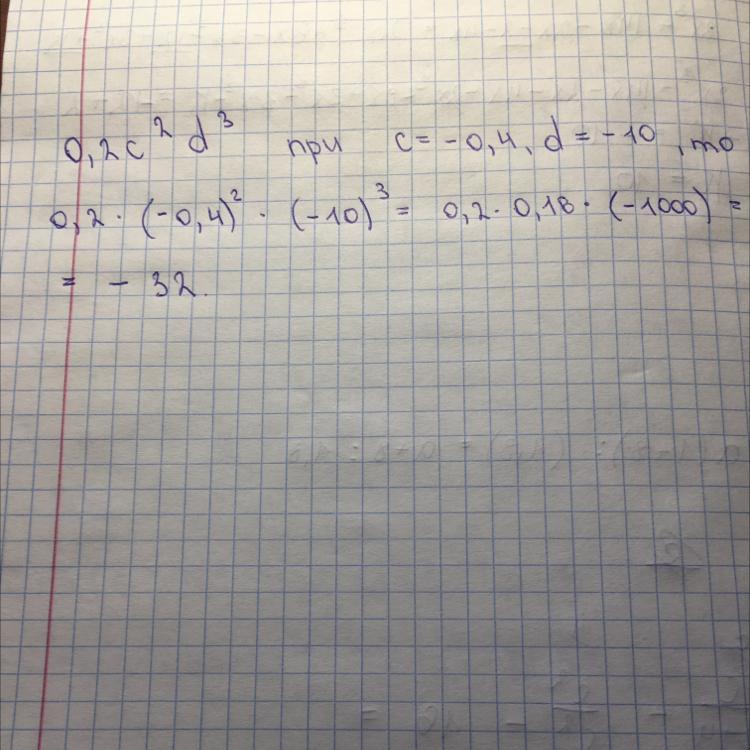 0,2c² d³ при c = -0,4, d = -10, то
0,2 · (-0,4)² · (-10)³ = 0,2 · 0,16 · (-1000) =
= - 32.